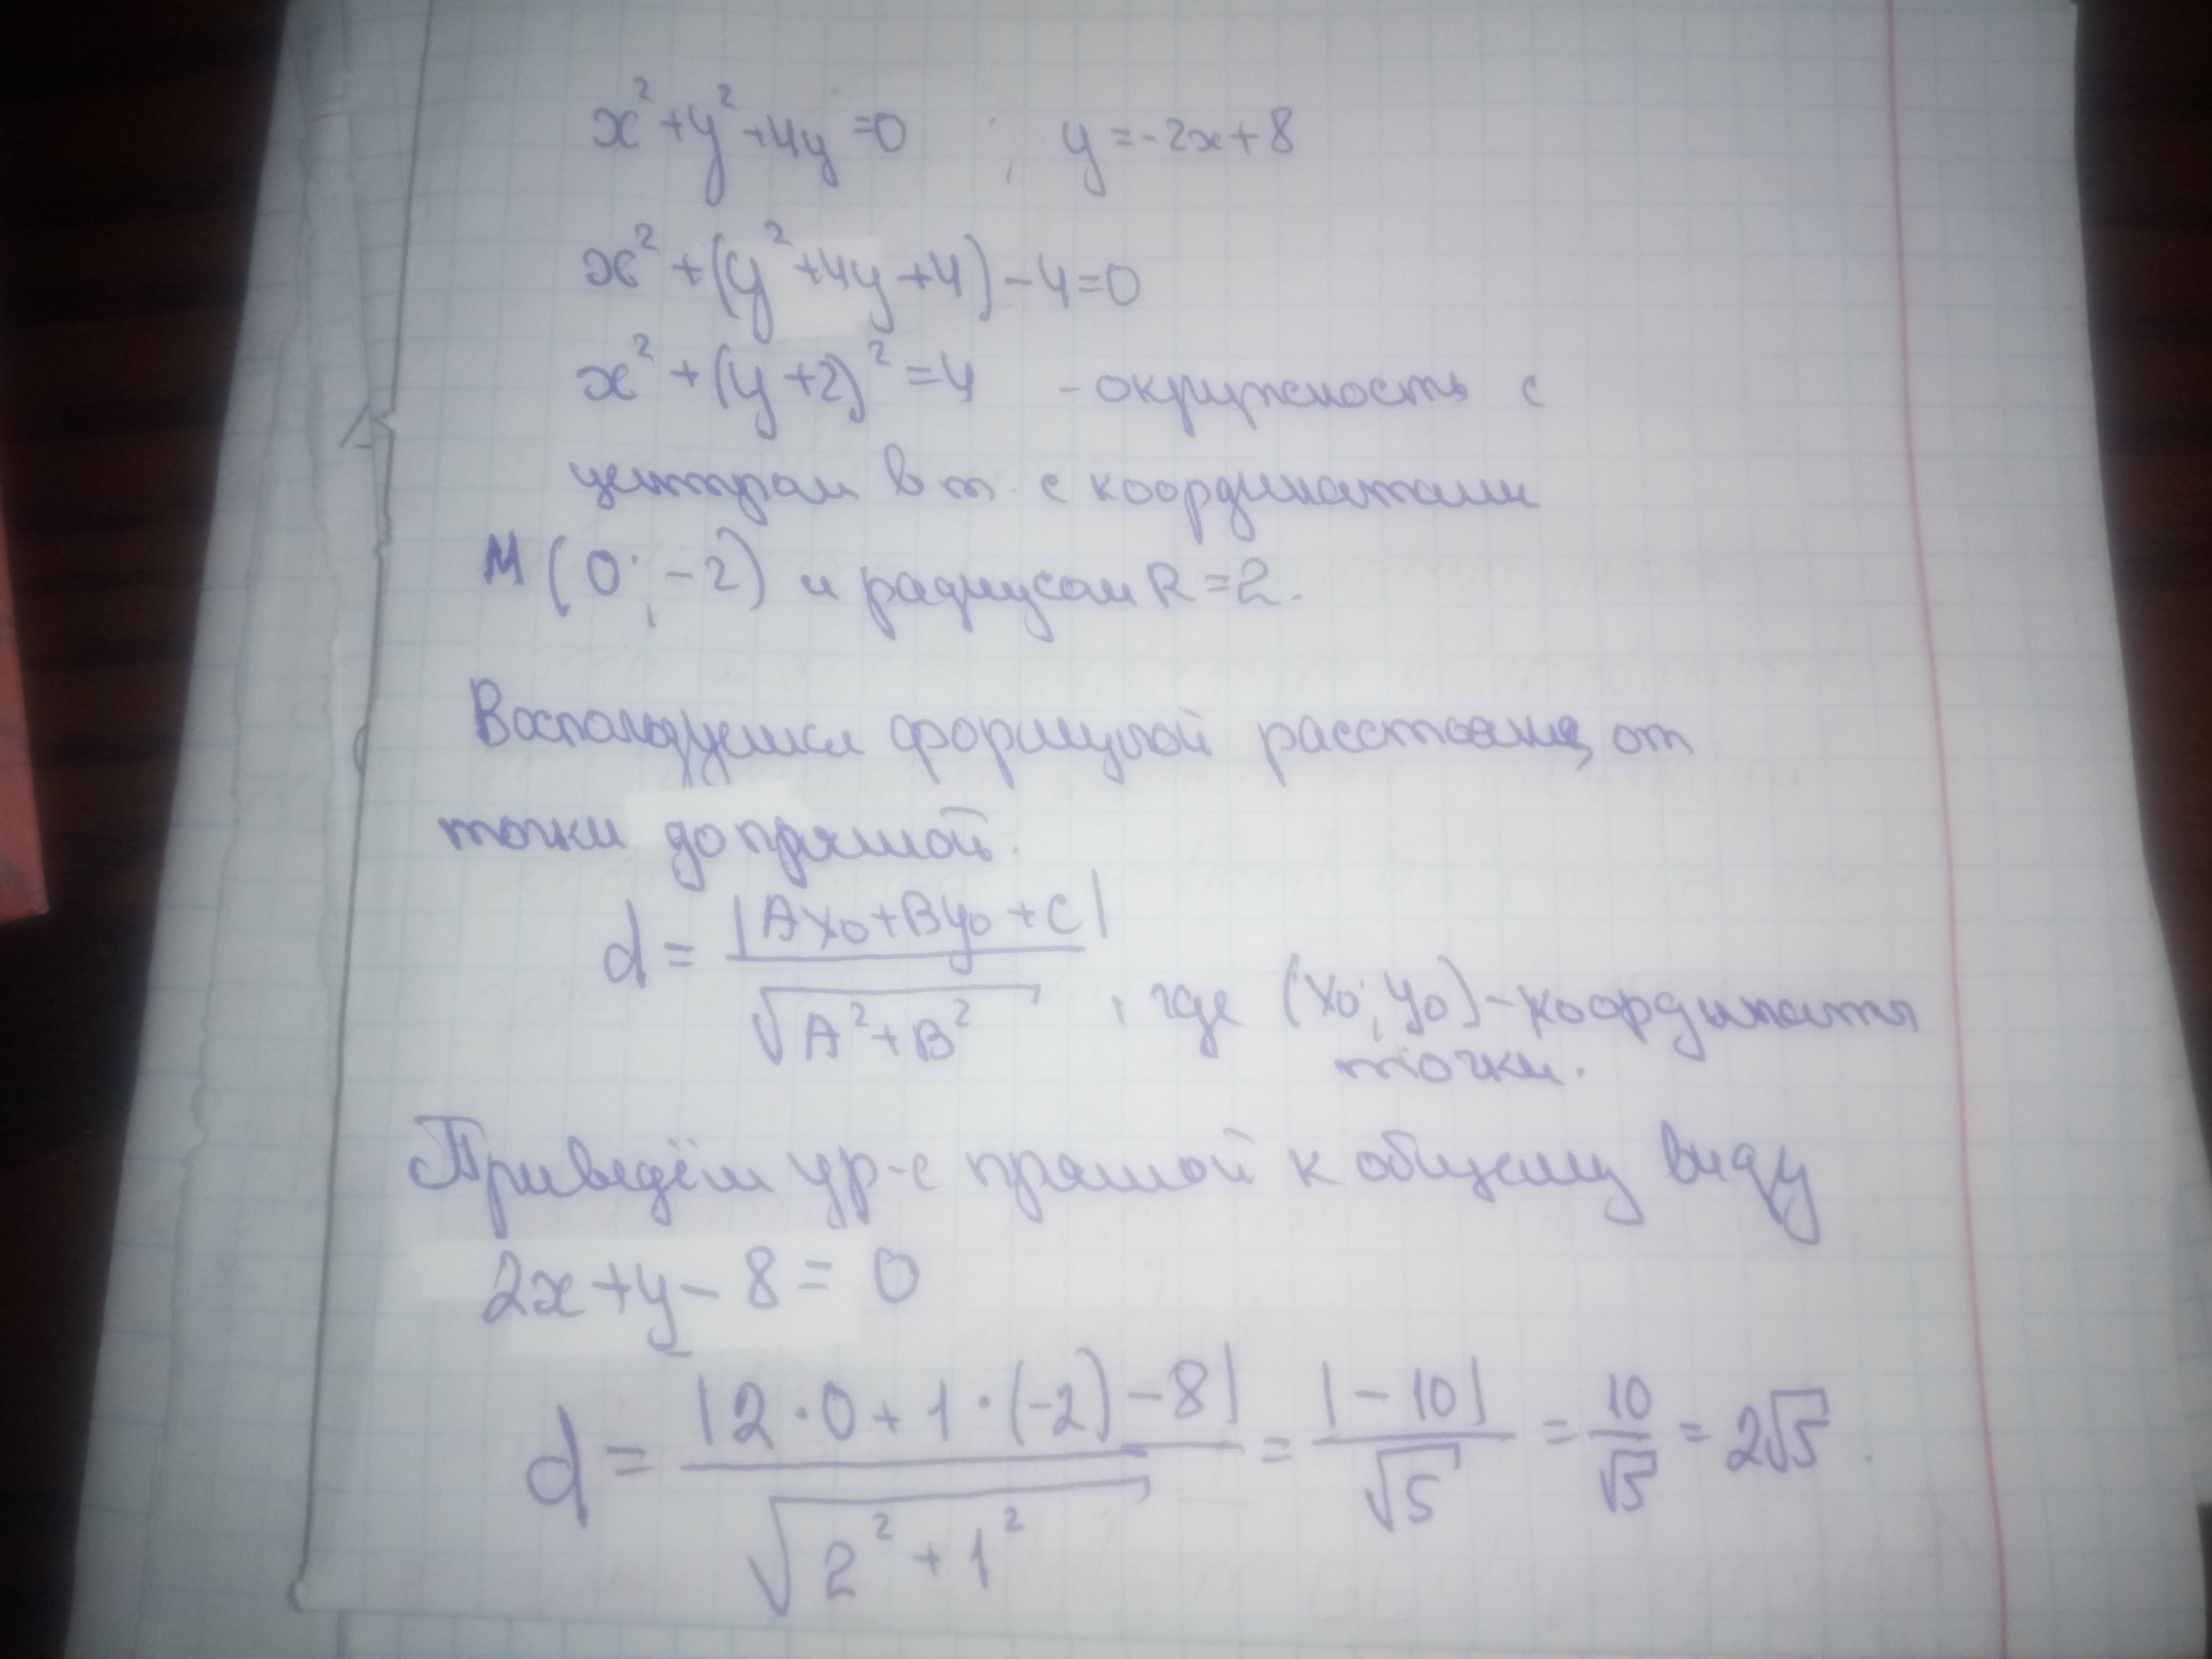 x² + y² + 4y = 0 ; y = -2x + 8
x² + (y² + 4y + 4) - 4 = 0
x² + (y + 2)² = 4 - окружность с
центром в т. с координатами
М (0; -2) и радиусом R = 2.
Воспользуемся формулой расстояния от
точки до прямой.
d = |Ax₀ + By₀ + C| / √(A² + B²) , где (x₀; y₀) - координаты
точки.
Приведём ур-е прямой к общему виду
2x + y - 8 = 0
d = |2 · 0 + 1 · (-2) - 8| / √(2² + 1²) = |-10| / √5 = 10 / √5 = 2√5 .